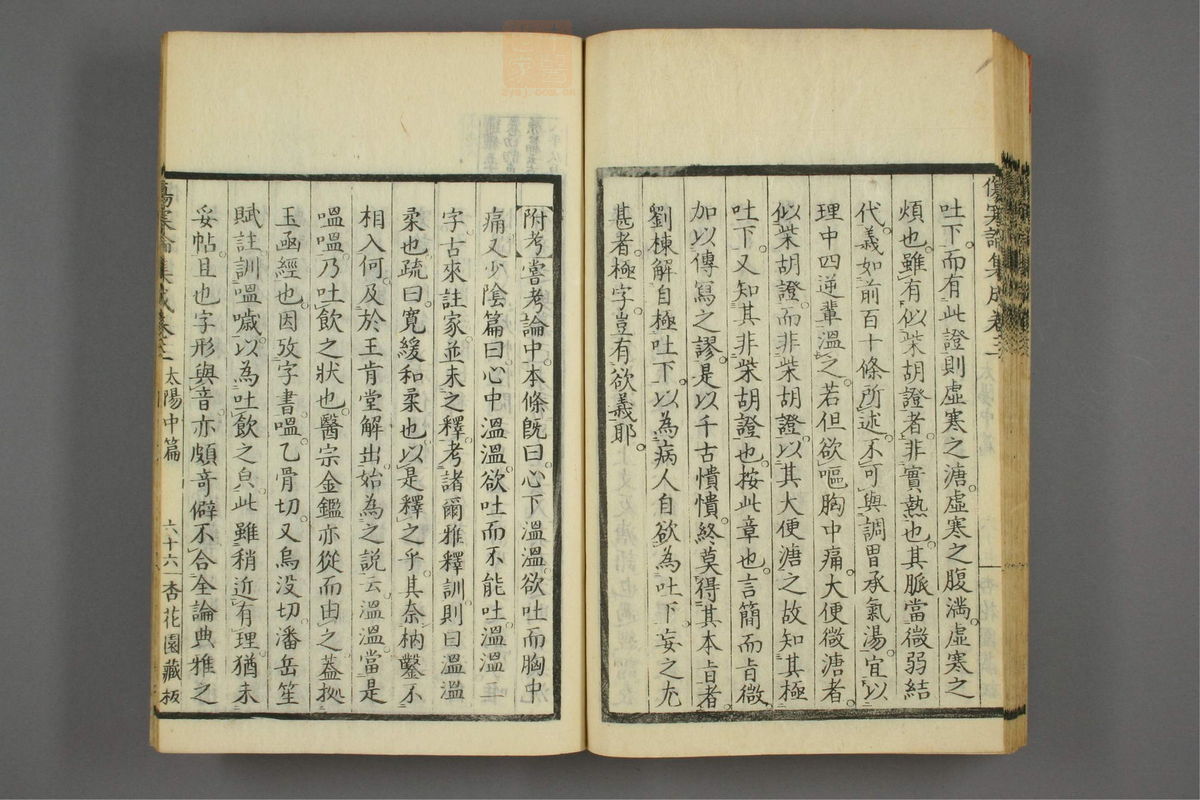 傷寒論集成卷三
吐下而有此證則虛寒之溏虛寒之腹滿虛寒之
煩也雖有似柴胡證者非實熱也其脈當微弱結
代義如前百十條所述不可與調胃承氣湯宜以
理中四逆輩溫之若但欲嘔胸中痛大便微溏者
似柴胡證而非柴胡證以其大便溏之故知其極
吐下又知其非柴胡證也按此章也言簡而旨微
加以傳寫之謬是以千古憒憒終莫得其本旨者
劉棟解自極吐下以為病人自欲為吐下妄之尤
甚者極字豈有欲義耶
附考嘗考論中本條既曰心下溫溫欲吐而胸中
痛又少陰篇曰心中溫溫欲吐而不能吐溫溫
字古來註家並未之釋考諸爾雅釋訓則曰溫溫
柔也疏曰寬緩和柔也以是釋之乎其奈枘鑿不
相入何及於王肯堂解出始為之説云溫溫當是
嗢嗢乃吐飲之狀也醫宗金鑑亦從而由之蓋拠
玉函經也因攷字書嗢乙骨切又烏没切潘岳笙
賦註訓嗢噦以為吐飲之皃此雖稍近有理猶未
妥帖且也字形與音亦頗奇僻不合全論典雅之
傷寒論集成卷三 太陽中篇 六十六 杏花園藏板